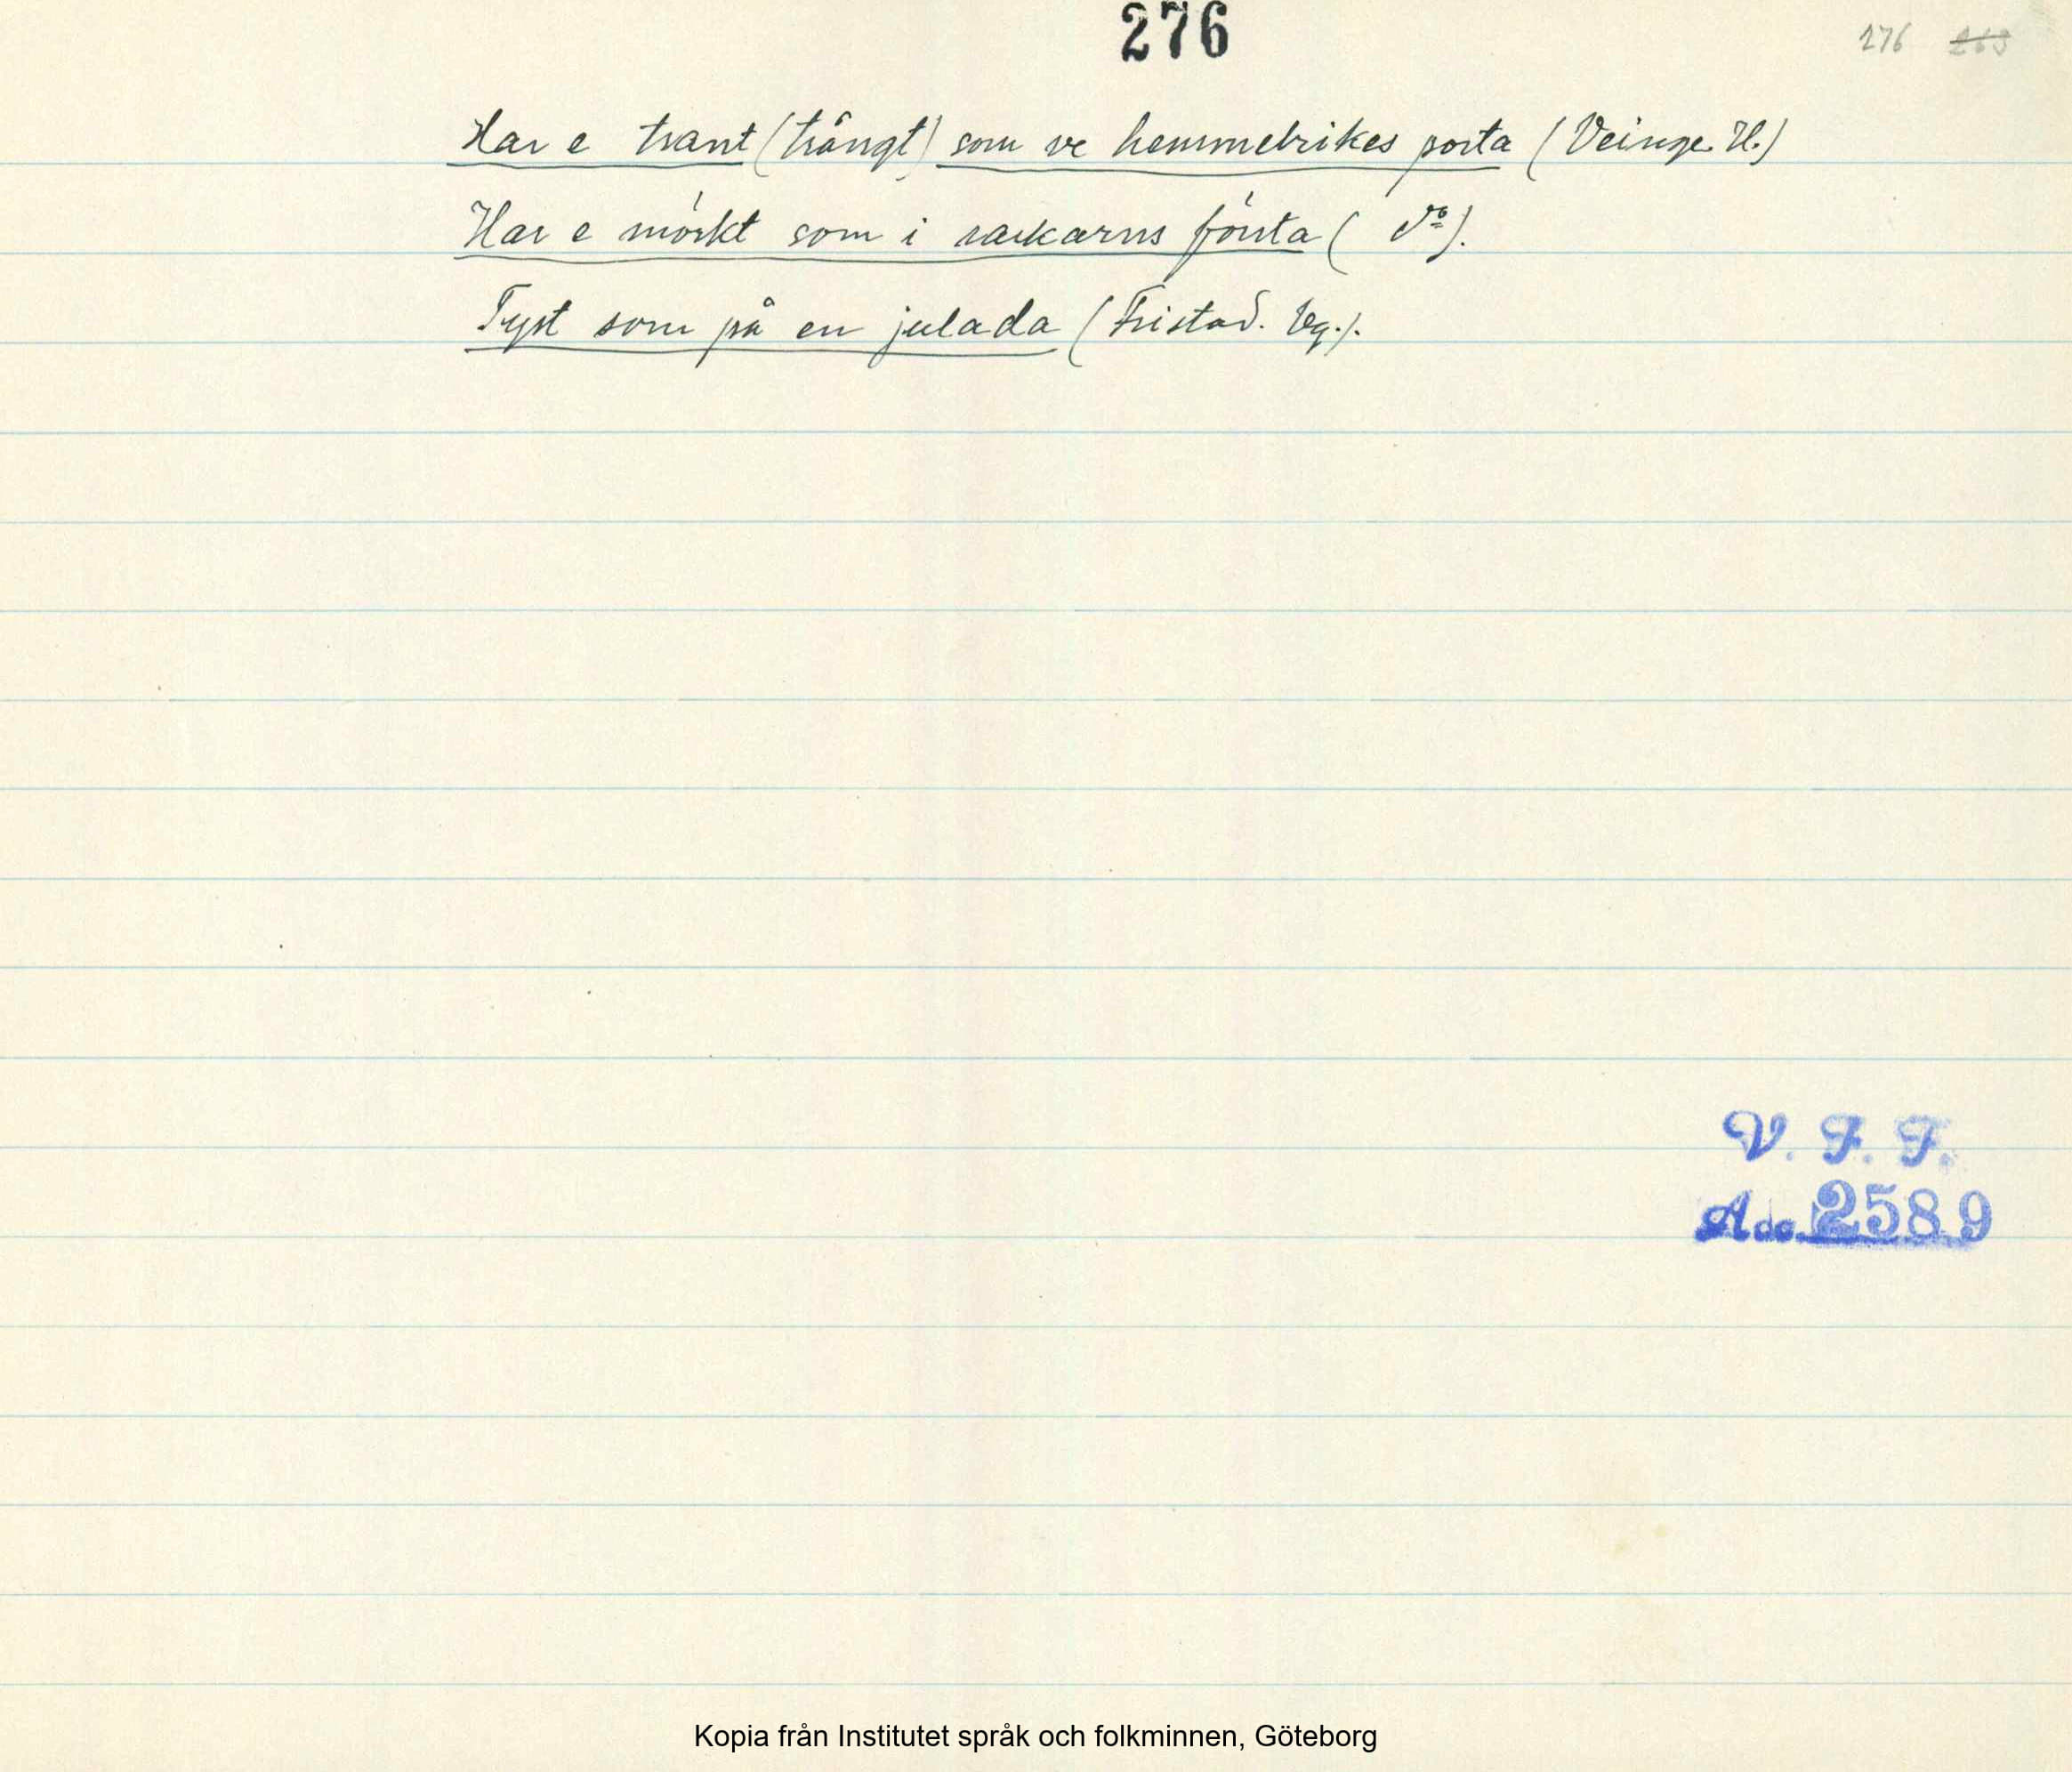 276
276 263
Har e trant (trångt) som ve hemmelrikes porta (Veinge. H.)
Har e mörkt som i sackarns fönta ( do).
Tyst som på en julada (Fristad. Vg.).
V. F. F.
Acc. 2589
Kopia från Institutet språk och folkminnen, Göteborg